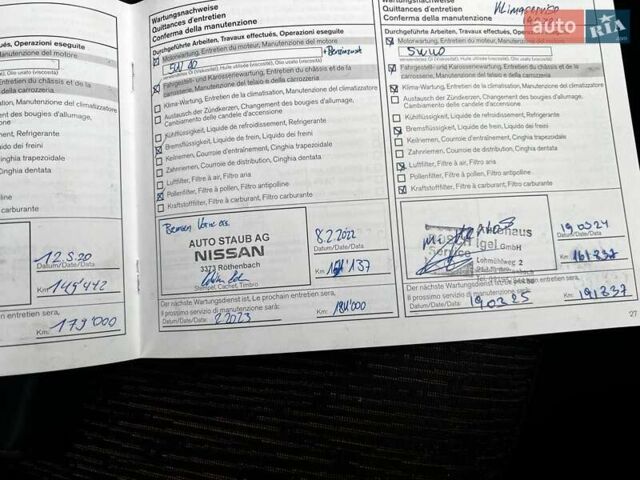 ués, Operazioni eseguite
Manutenzione del motore
Olio usato (viscosità)
Entretien du châssis et de la
della carrozzeria
ation, Manutenzione del climatizzatore
gement des bougies d'allumage,
Refrigerante
quido dei freini
Cinghia trapezoidale
Cinghia dentata
polline
carburante
12.5.20
Datum/Date/Data
145'442
Km:
entretien sera,
Km:
179'000
Wartungsnachweise
Quittances d'entretien
Conferma della manutenzione
Durchgeführte Arbeiten, Travaux effectués, Operazioni eseguite
Motorwartung, Entretien du moteur, Manutenzione del motore
5W40
verwendetes Öl (Viskosität), Huile utilisée (viscosité), Olio usato (viscosità)
Fahrgestell- und Karosseriewartung, Entretien du châssis et de la
carrosserie, Manutenzione del telaio e della carrozzeria
Klima-Wartung, Entretien de la climatisation, Manutenzione del climatizzatore
Austausch der Zündkerzen, Changement des bougies d'allumage,
Cambiamento delle candele d'accensione
Kühlflüssigkeit, Liquide de refroidissement, Refrigerante
Bremsflüssigkeit, Liquide de frein, Liquido dei freini
Keilriemen, Courroie d'entraînement, Cinghia trapezoidale
Zahnriemen, Courroie de distribution, Cinghia dentata
Luftfilter, Filtre à air, Filtro aria
Pollenfilter, Filtre à pollen, Filtro antipolline
Kraftstofffilter, Filtre à carburant, Filtro carburante
AUTO STAUB AG
NISSAN
3373 Röthenbach
Stempel, Cachet, Timbro
8.2.2022
Datum/Date/Data
Km:
137
Der nächste Wartungsdienst ist, Le prochain entretien sera,
Il prossimo servizio di manutenzione sarà:
Datum/Date/Data:
2.2023
Km:
181'000
Wartungsnachweise
Quittances d'entretien
Conferma della manutenzione
Klimaservice
Durchgeführte Arbeiten, Travaux effectués, Operazioni eseguite
Motorwartung, Entretien du moteur, Manutenzione del motore
5W40
verwendetes Öl (Viskosität), Huile utilisée (viscosité), Olio usato (viscosità)
Fahrgestell- und Karosseriewartung, Entretien du châssis et de la
carrosserie, Manutenzione del telaio e della carrozzeria
Klima-Wartung, Entretien de la climatisation, Manutenzione del climatizzatore
Austausch der Zündkerzen, Changement des bougies d'allumage,
Cambiamento delle candele d'accensione
Kühlflüssigkeit, Liquide de refroidissement, Refrigerante
Bremsflüssigkeit, Liquide de frein, Liquido dei freini
Keilriemen, Courroie d'entraînement, Cinghia trapezoidale
Zahnriemen, Courroie de distribution, Cinghia dentata
Luftfilter, Filtre à air, Filtro aria
Pollenfilter, Filtre à pollen, Filtro antipolline
Kraftstofffilter, Filtre à carburant, Filtro carburante
Igel GmbH
Service
Lohmühleweg 2
19.03.24
Datum/Date/Data
Km:
161'337
Der nächste Wartungsdienst ist, Le prochain entretien sera,
Il prossimo servizio di manutenzione sarà:
Datum/Date/Data:
19.03.25
Km:
191'337
27
auto RIA.com